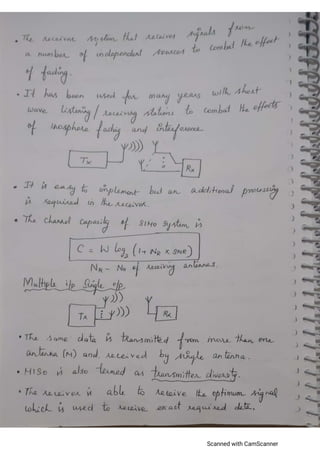 • The receiver system that receives signals from
a number of independent sources to combat the effect
of fading.
• It has been used for many years with short
wave listening / receiving stations to combat the effects
of inosphere fading and interference.
Tx
Rx
• It is easy to implement but an additional processing
is required in the receiver.
• The channel capacity of SIMO system is
C = W log₂ (1+ NR x SNR)
NR - No of receiving antennas.
Multiple i/p Single o/p.
Tx
Rx
• The same data is transmitted from more than one
antenna (M) and received by single antenna.
• MISO is also termed as transmitter diversity.
• The receiver is able to receive the optimum signal
which is used to receive exact required data.
Scanned with CamScanner